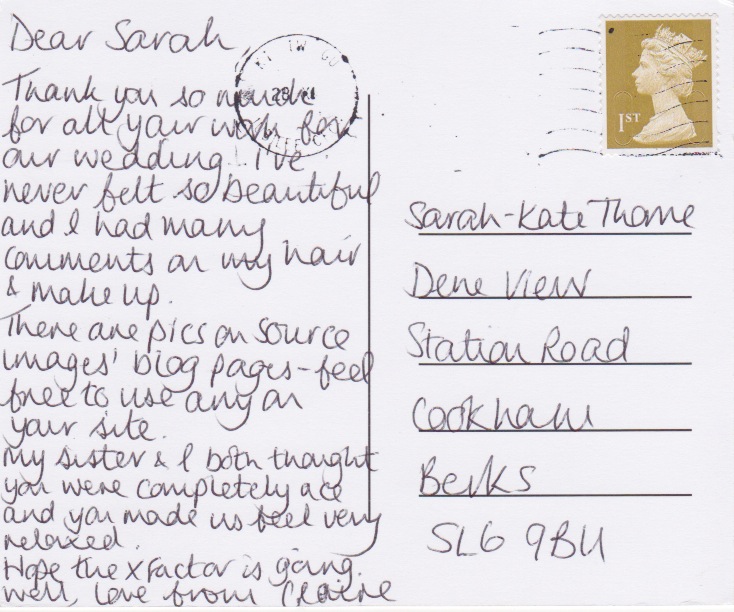 Dear Sarah,
Thank you so much
for all your work for
our wedding. I've
never felt so beautiful
and I had many
comments on my hair
& make up.
There are pics on Source
images' blog pages - feel
free to use any on
your site.
My sister & I both thought
you were completely ace
and you made us feel very
relaxed.
Hope the x factor is going
well, love from Claire
28
1ST
Sarah-Kate Thorne
Dene View
Station Road
Cookham
Berks
SL6 9BU